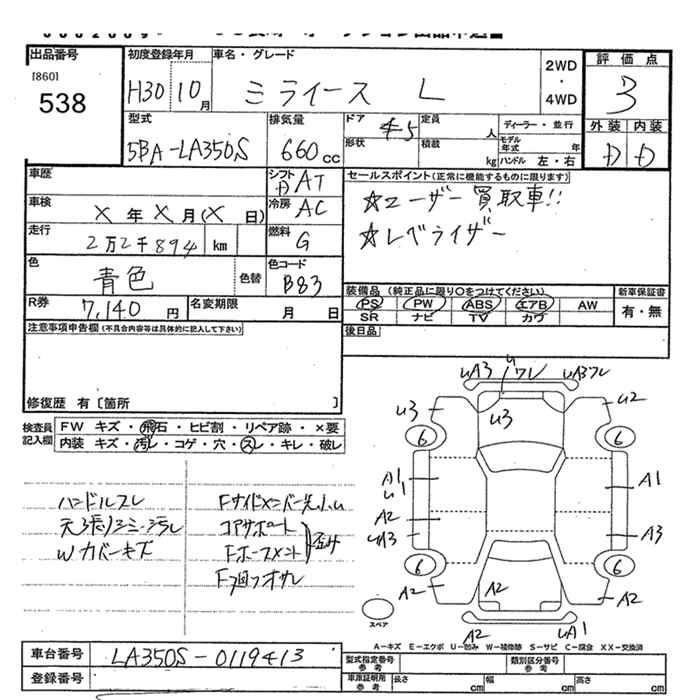 出品番号
[860]
538
初度登録年月
H30 10月
車名・グレード
ミライース L
2WD
・
4WD
評価点
3
外装 内装
D D
型式
5BA-LA350S
排気量
660cc
ドア
5
定員
人
形状
積載
kg
ディーラー・並行
モデル年式
年
ハンドル 左・右
車歴
シフト
AT
車検
X年X月(X日)
冷房
AC
走行
2万2千894 km
燃料
G
色
青色
色替
色コード
B83
R券
7,140円
名変期限
月 日
セールスポイント(正常に機能するものに限ります)
☆ユーザー買取車!!
☆レベライザー
装備品(純正品に限り○をつけてください)
PS PW ABS エアB AW
SR ナビ TV カワ
新車保証書
有・無
後日品
注意事項申告欄(不具合内容等は具体的に記入して下さい)
修復歴 有〔箇所 〕
検査員記入欄
FW キズ・飛石・ヒビ割・リペア跡・×要
内装 キズ・汚レ・コゲ・穴・スレ・キレ・破レ
ハンドルスレ
天張リシミ・汚レ
Wカバーキズ
Fサイドメンバー先小u
コアサポート
Fホースメント
歪ミ
uA3 u ワレ uA3ワレ
u3 u3 u2
6 6
A1 A1
u1
A2
uA3 A3
6 6
A2 A2 A2
A2 uA1
スペア
A-キズ E-エクボ U-凹み W-補修跡 S-サビ C-腐食 XX-交換済
車台番号
LA350S-0119413
登録番号
型式指定番号
参考
類別区分番号
参考
車庫証明用
参考
長さ cm 幅 cm 高さ cm